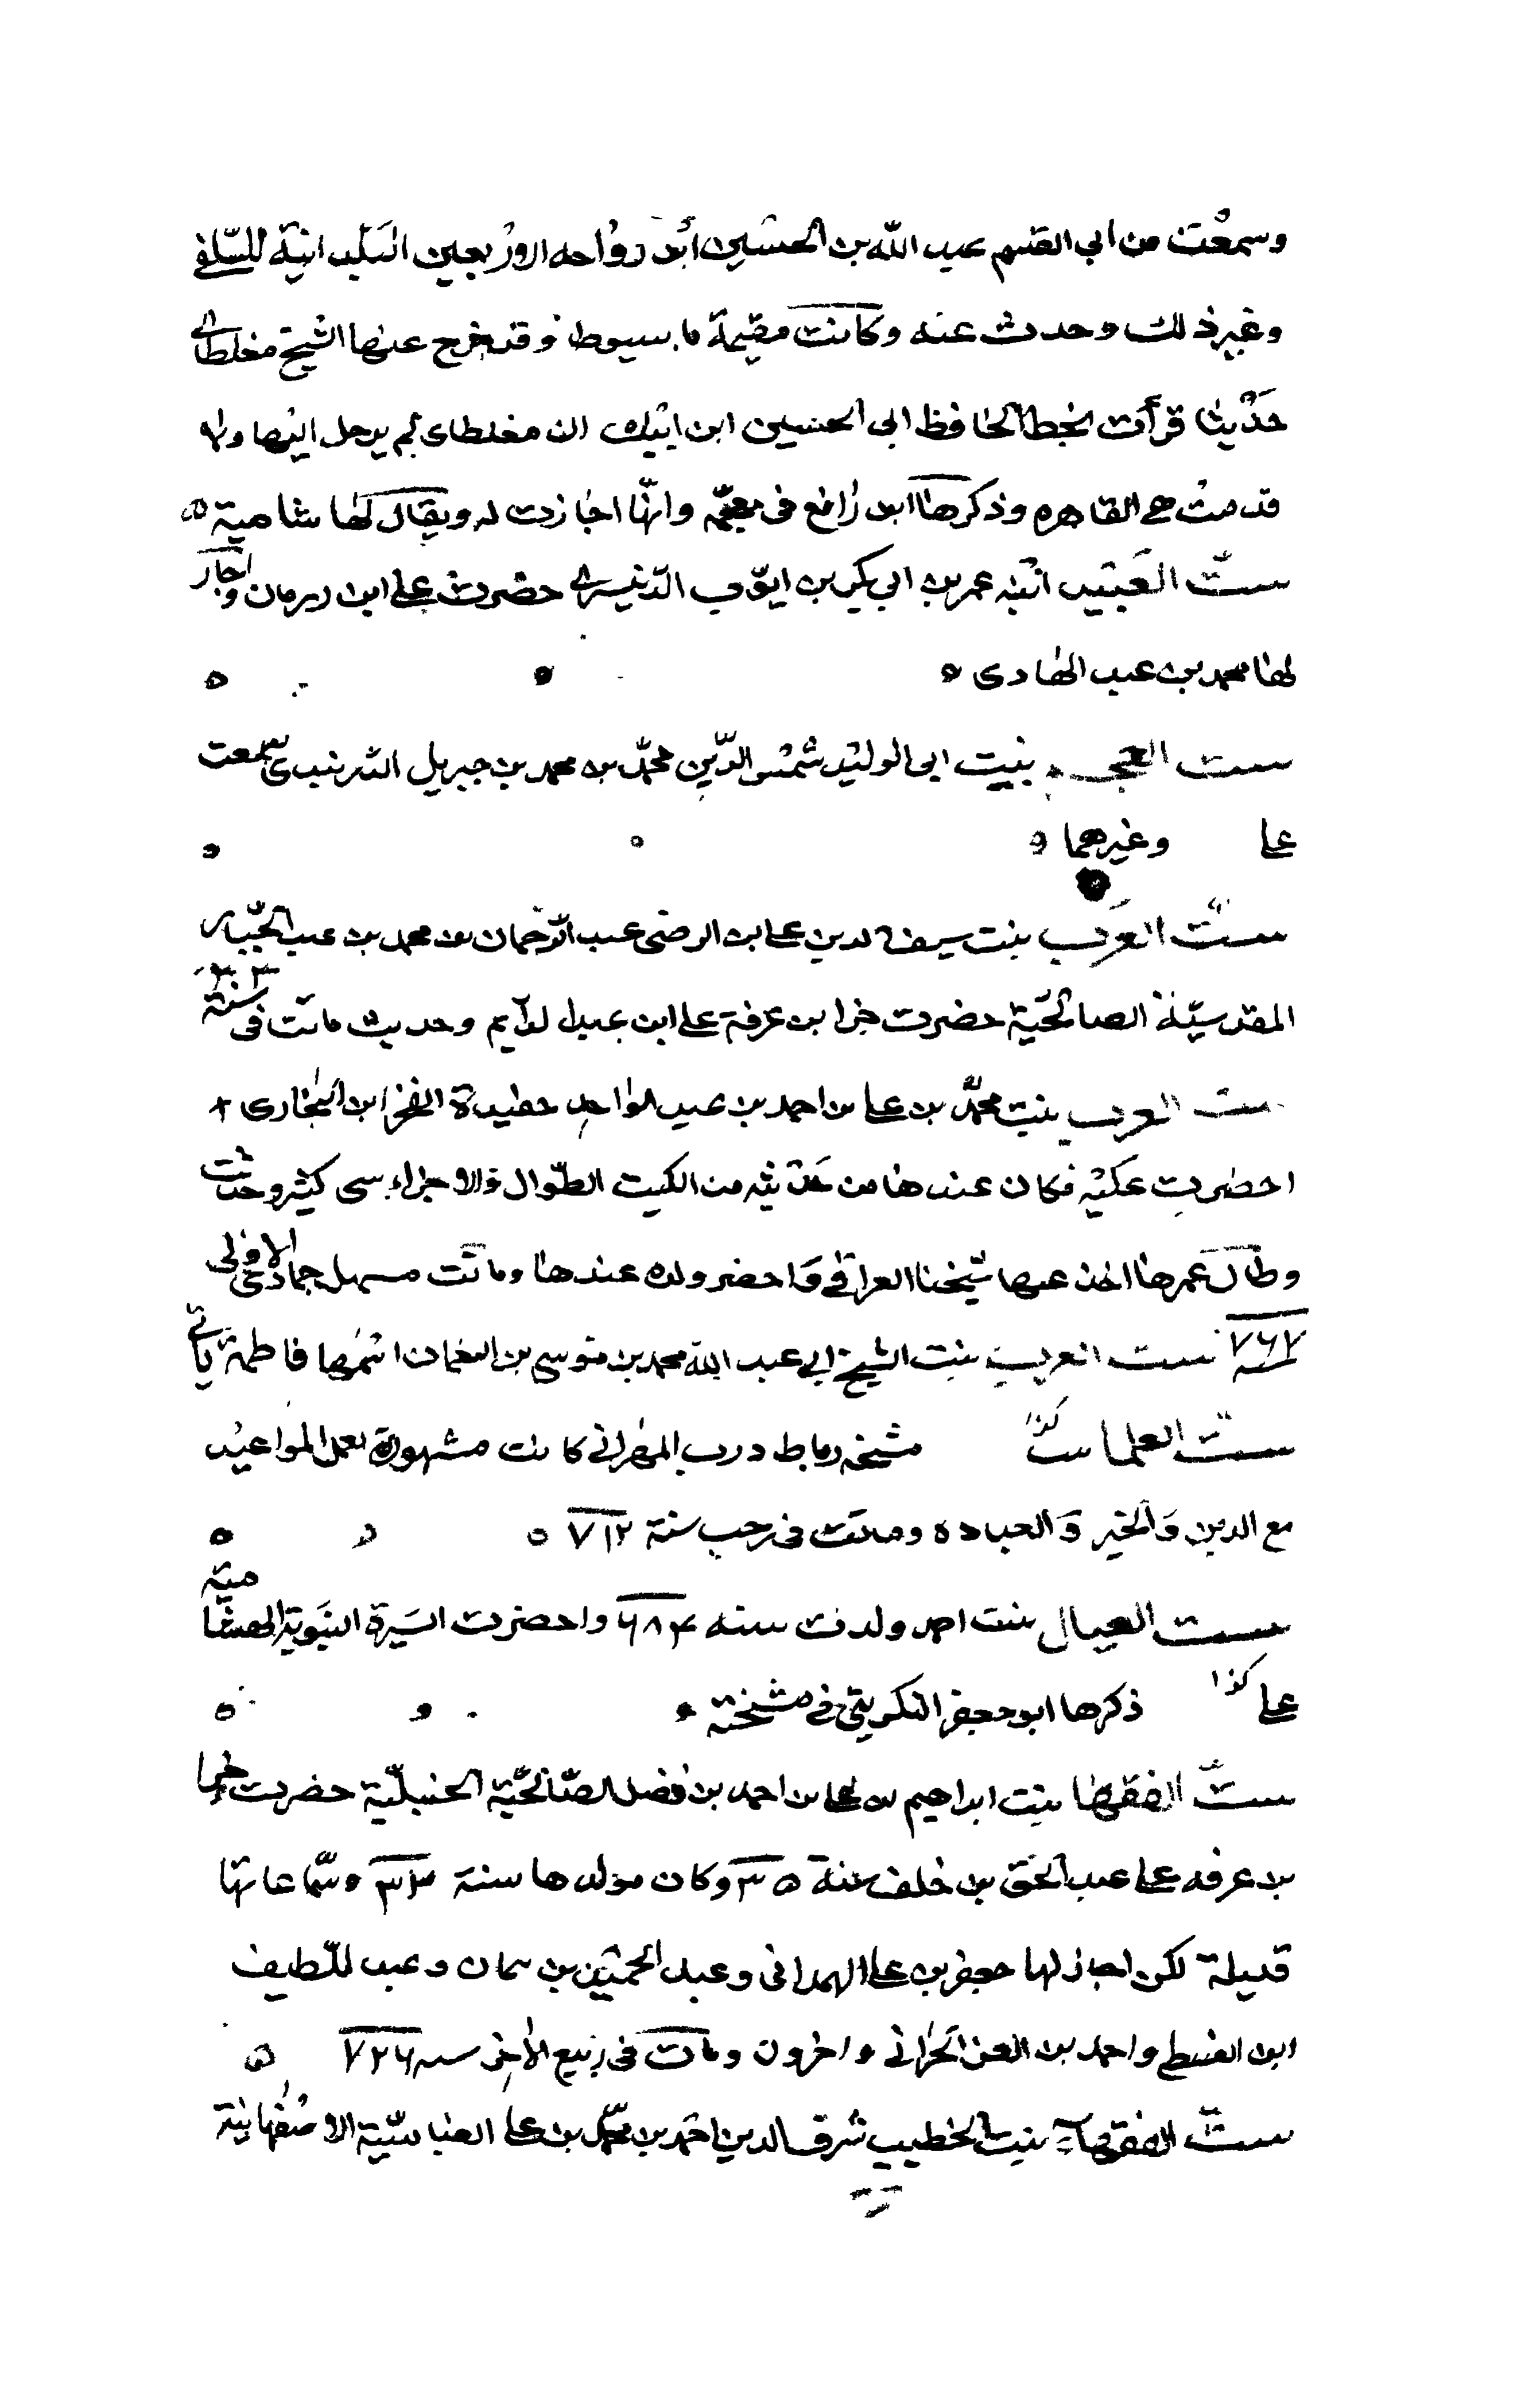 وسمعت من ابي القسم عبد الله بن الحسين ابن رواحه الاربعين البلدانية للسلفي
وغير ذلك وحدث عنه وكانت مقيمة باسيوط وقد خرج عنها الشيخ مغلطاي
حديثا قرأت بخط الحافظ ابي الحسين ابن ايبك ان مغلطاي لم يرحل اليها ولا
قدمت هي القاهره وذكرها ابن رافع في معجمه وانها اجازت له ويقال لها شامية
ست العبيد ابنه عمر بن ابي بكر بن ايوب الدنيسري حضرت علي ابن واجاز
لها محمد بن عبد الهادي
ست العجم بنت ابي الوليد شمس الدين محمد بن محمد بن جبريل سمعت
علي وغيرهما
ست العرب بنت سيف الدين علي ابن الرضى عبد الرحمان بن محمد بن عبد الجبار
المقدسية الصالحية حضرت جزا بن عرفة علي ابن عبد الدايم وحديث ماتت في سنة ٧٣٤
ست العرب بنت محمد بن علي بن احمد بن عبد الواحد حفيدة الفخر ابن البخاري
احضرت عليه فكان عندها من حديثه من الكتب الطوال والاجزاء سى كثير وحدثت
وطال عمرها اخذ عنها شيخنا العراقي واحضر ولده عندها وماتت مستهل جمادي الاولى
سنة ٧٦٧ ست العرب بنت الشيخ ابي عبد الله محمد بن موسى بن النعمان اسمها فاطمة ياتي
ست العلما كذا شيخه رباط درب المهراني كانت مشهورة بعمل المواعيد
مع الدين والخير والعباده وماتت في رجب سنة ٧١٢
ست العيال بنت احمد ولدت سنه ٦٨٤ واحضرت السيرة النبوية الهشامية
علي كذا ذكرها ابو جعفر التكريتي في مشيخته
ست الفقها بنت ابراهيم بن علي بن احمد بن فضل الصالحية الحنبلية حضرت جزا
بن عرفه علي عبد الحق بن خلف سنة ٣٥ وكان مولدها سنة ٣٣ وسماعاتها
قليلة لكن اجاز لها جعفر بن علي الهمداني وعبد الرحمن بن بنيمان وعبد اللطيف
ابن القبيطي واحمد بن العز الحراني واخرون وماتت في ربيع الاخر سنه ٧٢٦
ست الفقهاء بنت الخطيب شرف الدين احمد بن محمد بن علي العباسية الاصفهانية